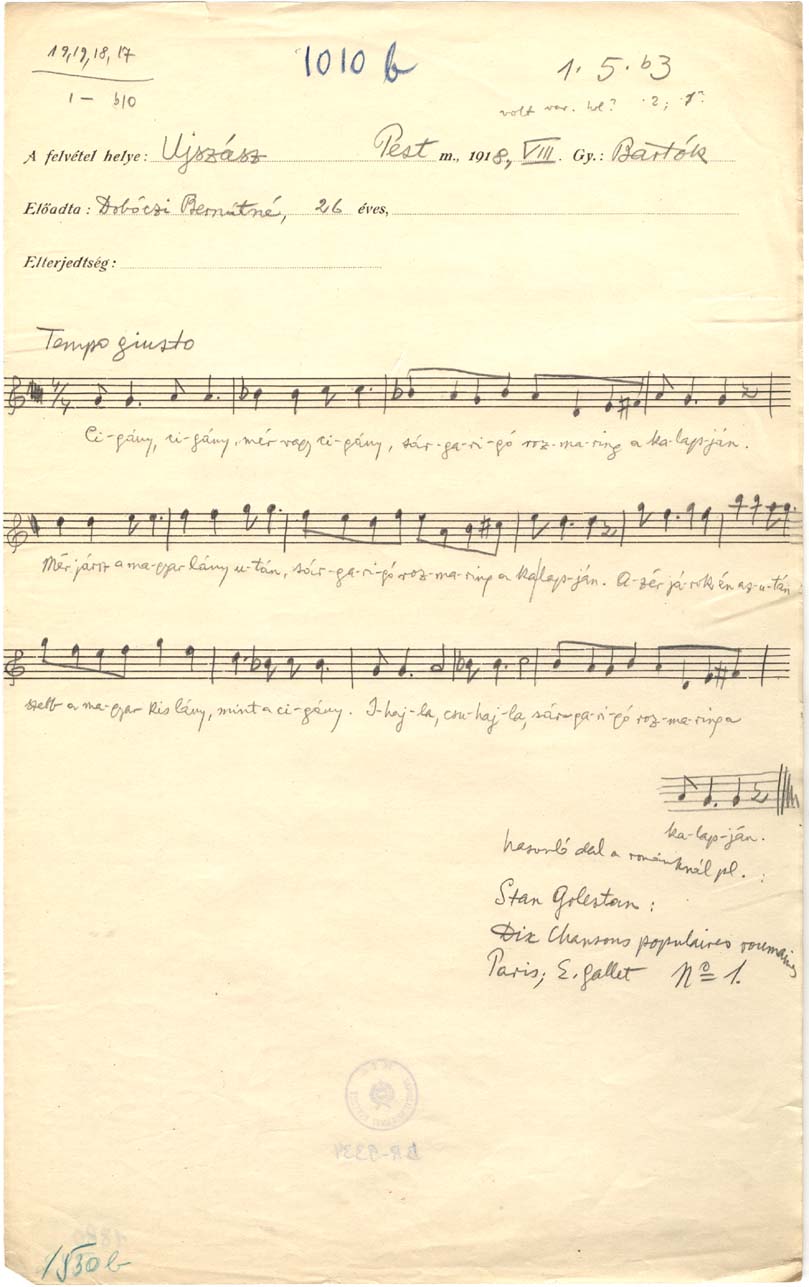 19,19,18,17
1 – b10
1010 b
1. 5. b3
volt var. hol? 2;
A felvétel helye: Ujszász Pest m., 1918, VIII. Gy.: Bartók
Előadta: Dobóczi Bernátné, 26 éves,
Elterjedtség:
Tempo giusto
Ci-gány, ci-gány, mér vagy ci-gány, sár-ga-ri-gó roz-ma-ring a ka-lap-ján.
Mér jársz a ma-gyar lány u-tán, sár-ga-ri-gó roz-ma-ring a ka-lap-ján. A-zér já-rok én az u-tán
szebb a ma-gyar kis lány, mint a ci-gány. I-haj-la, csu-haj-la, sár-ga-ri-gó roz-ma-ring a
ka-lap-ján.
hasonló dal a románknál pl. :
Stan Golestan :
Dix Chansons populaires roumaines
Paris, E. Gallet No 1.
BR-9334
1530 b